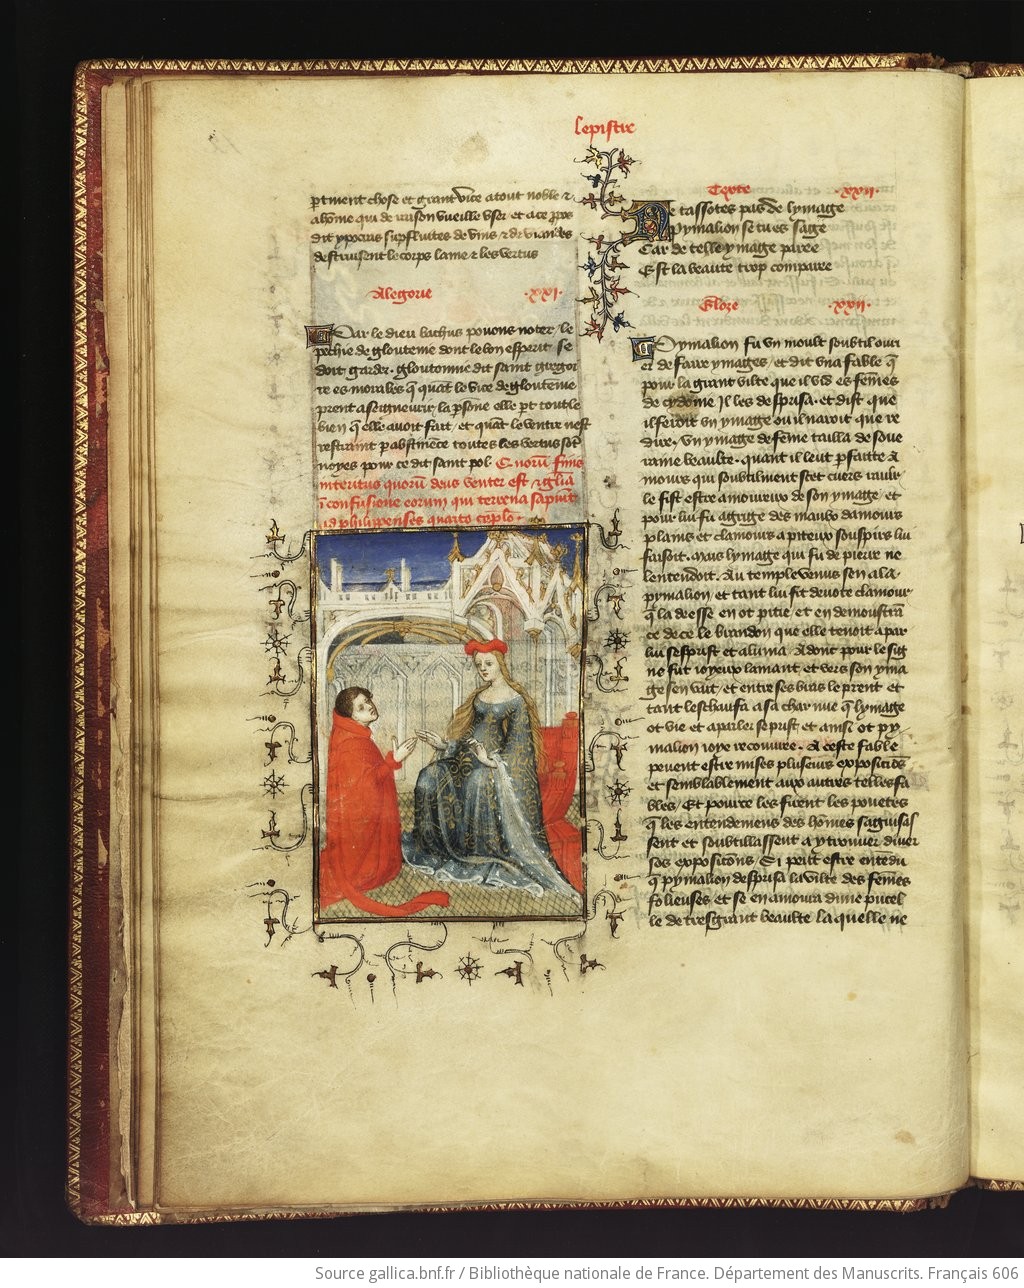 Lepistre
ptinent chose et grant vice a tout noble &
a hõme qui de raison vueille vser et a ce ꝓpos
dit ypocras supfluites de vins & de viandes
destruisent le corps lame & les vertus
Alegorie .xxi.
Par le dieu bachus povons noter le
pechie de gloutenie dont le bon esperit se
doit garder. gloutonnie dit saint gregoi
re es morales q̃ quãt le vice de gloutenie
prent a seigneurir la ꝑsone elle pt tout le
bien q̃ elle avoit fait / et quãt le ventre nest
restraint p abstinẽce toutes les vertus sõt
noyes pour ce dit saint pol. Quorũ finis
interitus quorũ deus venter est & gl̃ia
ĩ confusione eorum qui terrena sapiũt
ad philippenses quarto cap̃lo.
Texte .xxii.
Ne tassotes pas de lymage
Pymalion se tu es sage
Car de tel le ymage paree
Est la beaute trop comparee
Glose .xxii.
Pymalion fu vn moult soubtil ouvri
er de faire ymages / et dit vna fable q̃
pour la grant vilte que il vid es fẽmes
de cydoine Il les desprisa. et dist que
il feroit vn ymage ou il naroit que re
dire. vn ymage de fẽme tailla de souve
raine beaulte. quant il leut pfaicte a
mours qui soubtilment scet cuers ravir
le fist estre amoureux de son ymage / et
pour lui fu agrige des maulx damours
plains et clamours a piteux souspirs lui
faisoit. mais lymage qui fu de pierre ne
lentendoit. Au temple venus sen ala
pymalion et tant lui fit devote clamour
q̃ la deesse en ot pitie et en demoustrã
ce de ce le brandon que elle tenoit a par
lui sesprist et aluma. Adont pour le sig
ne fut ioyeux lamant et vers son yma
ge sen vait / et entre ses bras le prent et
tant leschaufa a sa char nue q̃ lymage
ot vie et a parler se prist et ainsi ot py
malion ioye recouvre. A ceste fable
peuent estre mises plusieurs exposiciõs
et semblablement aux autres telles fa
bles / Et pour ce les firent les pouetes
q̃ les entendemens des hõmes saguisas
sent et soubtillassent a y trouver diver
ses exposiciõns / Si peut estre entẽdu
q̃ pymalion desprisa la vilte des fẽmes
folieuses et se enamoura dune pucel
le de tresgrant beaulte laquelle ne
Source gallica.bnf.fr / Bibliothèque nationale de France. Département des Manuscrits. Français 606